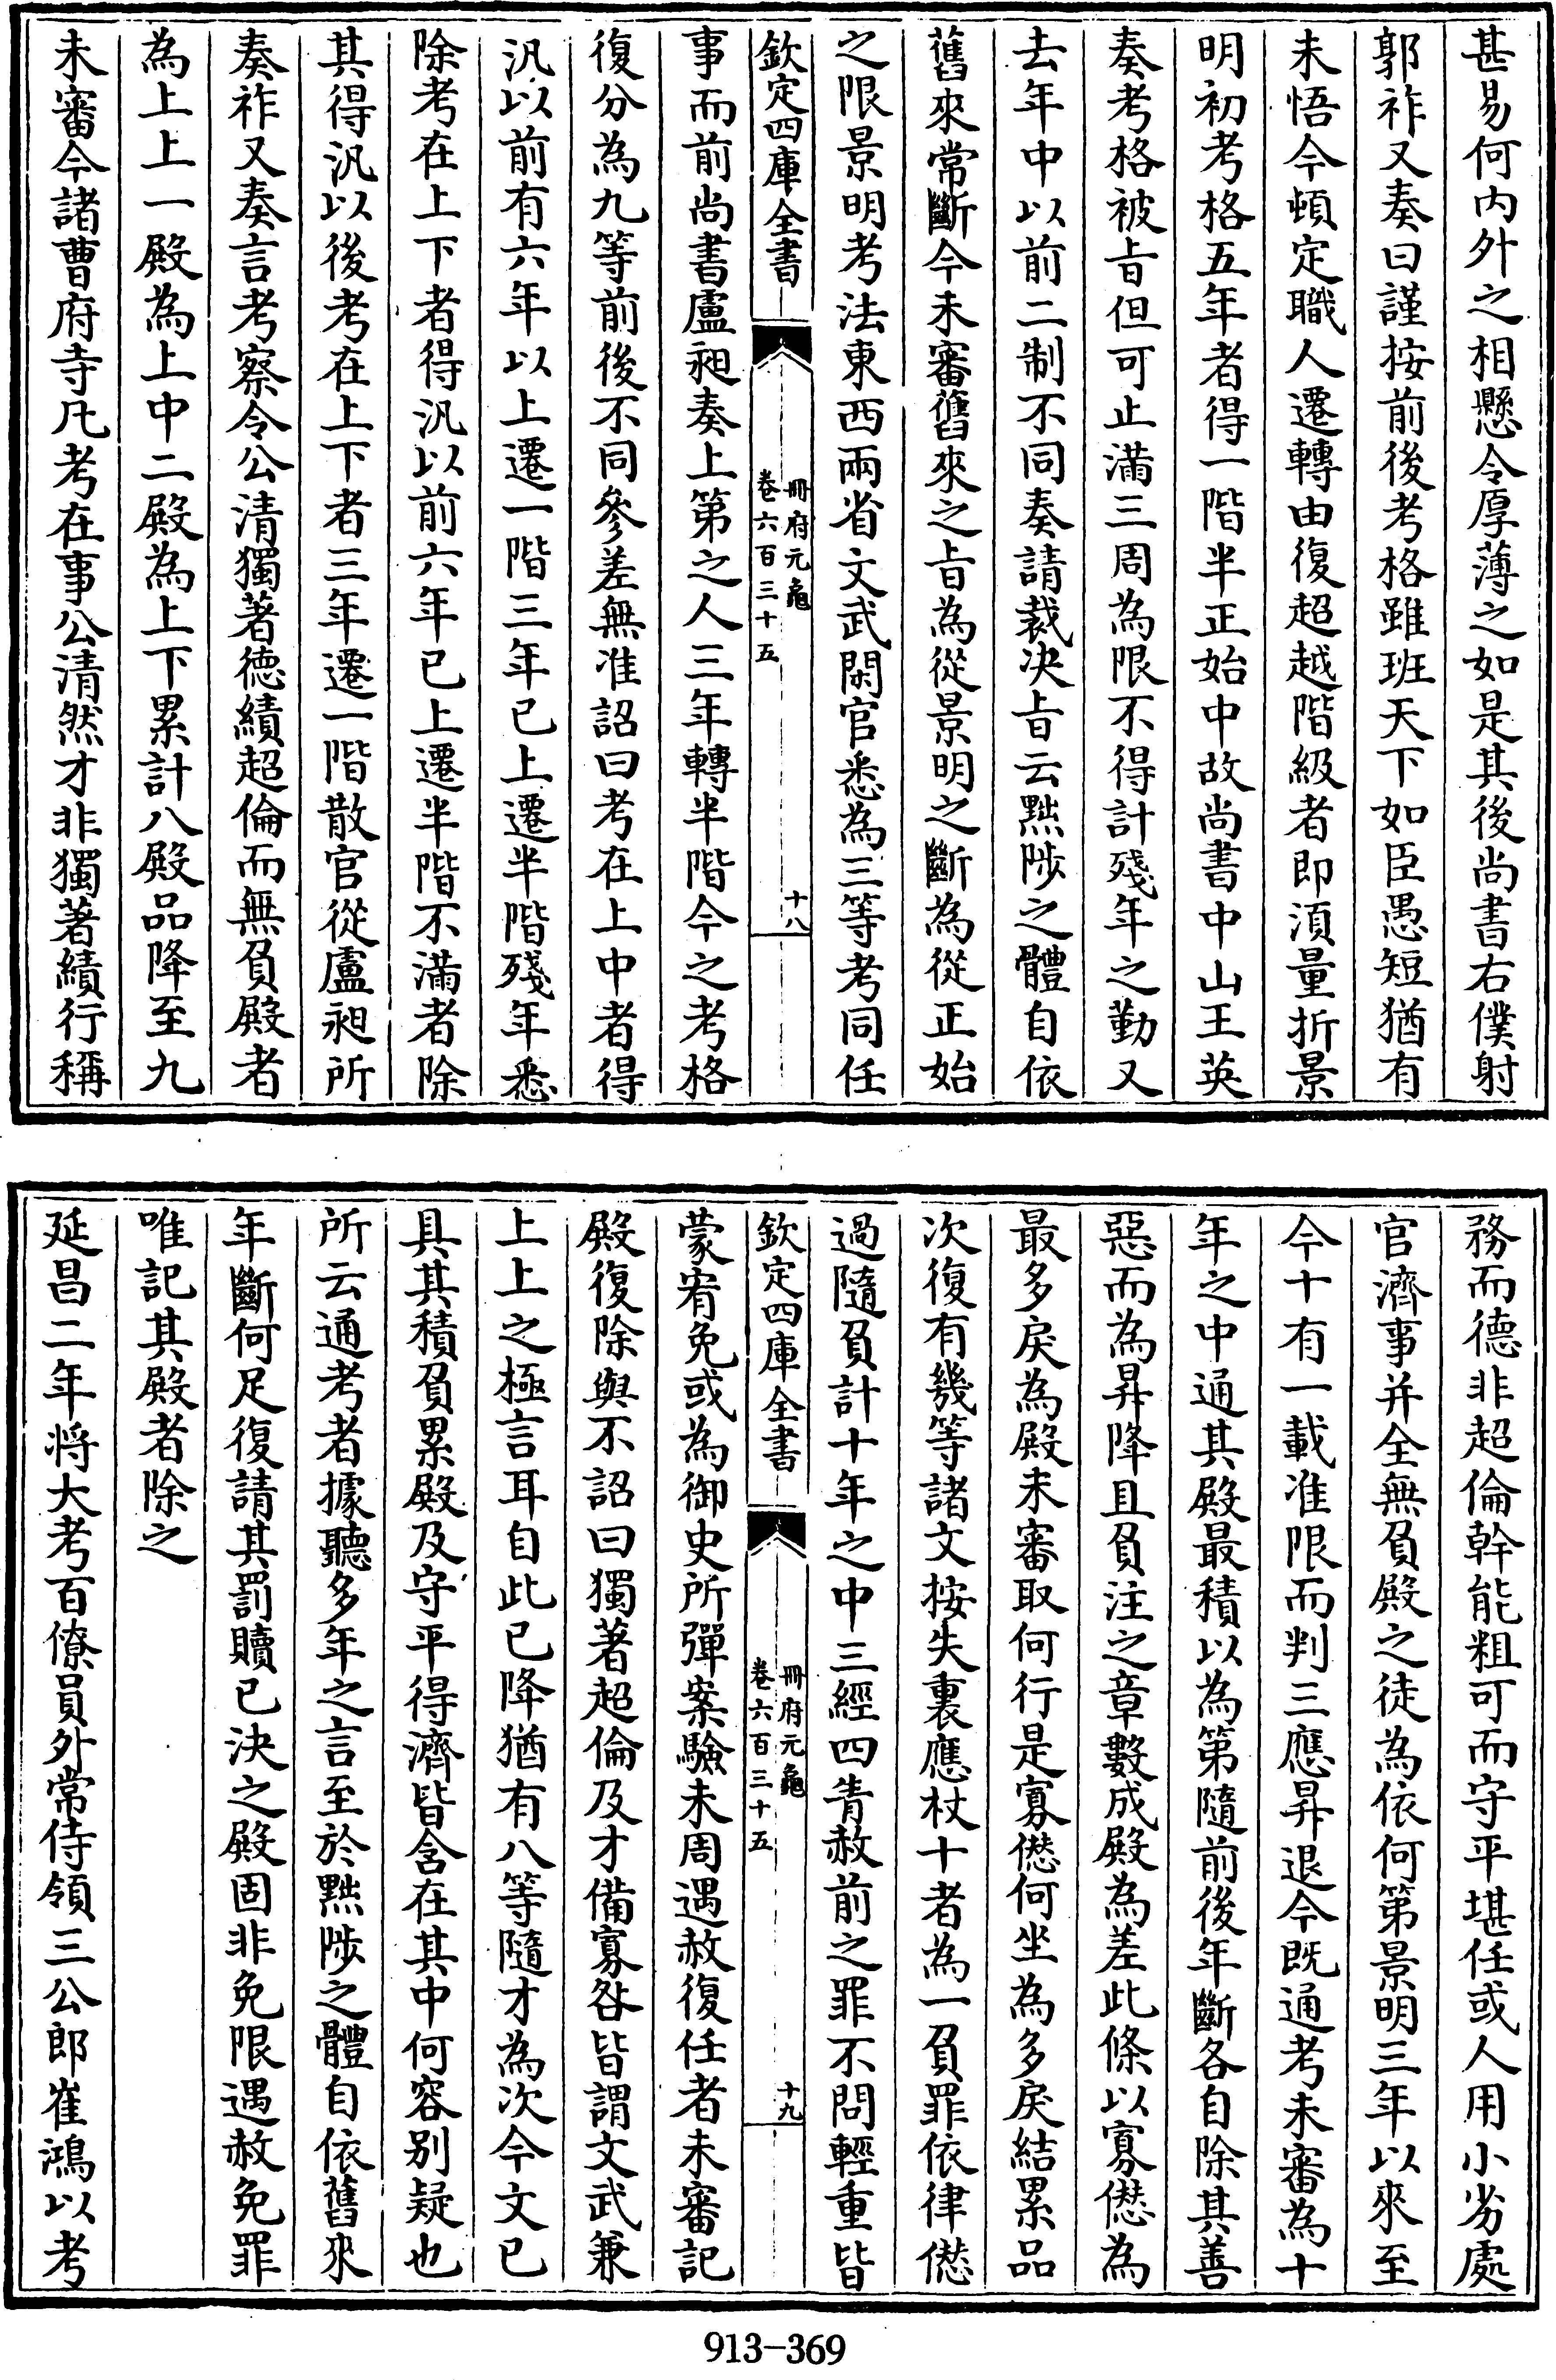 甚易何内外之相懸令厚薄之如是其後尚書右僕射
郭祚又奏曰謹按前後考格雖班天下如臣愚短猶有
未悟今頓定職人遷轉由復超越階級者即須量折景
明初考格五年者得一階半正始中故尚書中山王英
奏考格被旨但可止滿三周為限不得計殘年之勤又
去年中以前二制不同奏請裁决旨云黜陟之體自依
舊來常斷今未審舊來之旨為從景明之斷為從正始
之限景明考法東西兩省文武閑官悉為三等考同任
欽定四庫全書
冊府元龜
卷六百三十五
十八
事而前尚書盧昶奏上第之人三年轉半階今之考格
復分為九等前後不同參差無准詔曰考在上中者得
汎以前有六年以上遷一階三年已上遷半階殘年悉
除考在上下者得汎以前六年已上遷半階不滿者除
其得汎以後考在上下者三年遷一階散官從盧昶所
奏祚又奏言考察令公清獨著德績超倫而無負殿者
為上上一殿為上中二殿為上下累計八殿品降至九
未審今諸曹府寺凡考在事公清然才非獨著績行稱
務而德非超倫幹能粗可而守平堪任或人用小劣處
官濟事并全無負殿之徒為依何第景明三年以來至
今十有一載准限而判三應昇退今既通考未審為十
年之中通其殿最積以為第隨前後年斷各自除其善
惡而為昇降且負注之章數成殿為差此條以寡愆為
最多戾為殿未審取何行是寡愆何坐為多戾結累品
次復有幾等諸文按失裏應杖十者為一負罪依律愆
過隨負計十年之中三經四眚赦前之罪不問輕重皆
欽定四庫全書
冊府元龜
卷六百三十五
十九
蒙宥免或為御史所彈案驗未周遇赦復任者未審記
殿復除與不詔曰獨著超倫及才備寡咎皆謂文武兼
上上之極言耳自此已降猶有八等隨才為次今文已
具其積負累殿及守平得濟皆含在其中何容别疑也
所云通考者據聽多年之言至於黜陟之體自依舊來
年斷何足復請其罰贖已決之殿固非免限遇赦免罪
唯記其殿者除之
延昌二年將大考百僚員外常侍領三公郎崔鴻以考
913-369